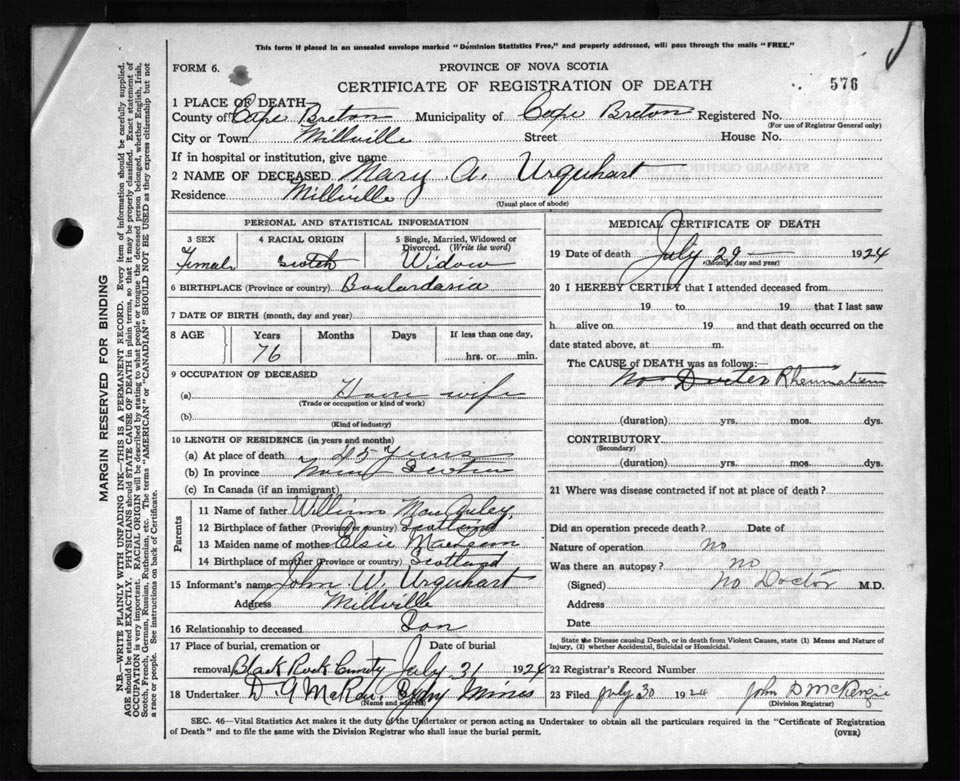 This form if placed in an unsealed envelope marked "Dominion Statistics Free," and properly addressed, will pass through the mails "FREE."
FORM 6.
PROVINCE OF NOVA SCOTIA
CERTIFICATE OF REGISTRATION OF DEATH
576
1 PLACE OF DEATH
County of Cape Breton Municipality of Cape Breton Registered No.
(For use of Registrar General only)
City or Town Millville Street House No.
If in hospital or institution, give name
2 NAME OF DECEASED Mary A. Urquhart
Residence Millville
(Usual place of abode)
PERSONAL AND STATISTICAL INFORMATION
3 SEX 4 RACIAL ORIGIN 5 Single, Married, Widowed or Divorced. (Write the word)
Female Scotch Widow
6 BIRTHPLACE (Province or country) Boulardarie
7 DATE OF BIRTH (month, day and year)
8 AGE Years Months Days If less than one day,
76 hrs. or min.
9 OCCUPATION OF DECEASED
(a) House wife
(Trade or occupation or kind of work)
(b)
(Kind of industry)
10 LENGTH OF RESIDENCE (in years and months)
(a) At place of death 45 years
(b) In province Nova Scotia
(c) In Canada (if an immigrant)
Parents
11 Name of father William MacAuley
12 Birthplace of father (Province or country) Scotland
13 Maiden name of mother Elsie
14 Birthplace of mother (Province or country) Scotland
15 Informant's name John W. Urquhart
Address Millville
16 Relationship to deceased Son
17 Place of burial, cremation or removal Date of burial
Black Rock July 31 1924
18 Undertaker D. A. McRae, Sydny Mines
(Name and address)
MEDICAL CERTIFICATE OF DEATH
19 Date of death July 29 1924
(Month, day and year)
20 I HEREBY CERTIFY that I attended deceased from
19 to 19 that I last saw
h alive on 19 and that death occurred on the
date stated above, at m.
The CAUSE of DEATH was as follows:—
No Docter Rheumatism
(duration) yrs. mos. dys.
CONTRIBUTORY
(Secondary)
(duration) yrs. mos. dys.
21 Where was disease contracted if not at place of death?
Did an operation precede death? Date of
Nature of operation no
Was there an autopsy? no
(Signed) No Doctor M.D.
Address
Date
State the Disease causing Death, or in death from Violent Causes, state (1) Means and Nature of
Injury, (2) whether Accidental, Suicidal or Homicidal.
22 Registrar's Record Number
23 Filed July 30 1924 John D McKenzie
(Division Registrar)
SEC. 46—Vital Statistics Act makes it the duty of the Undertaker or person acting as Undertaker to obtain all the particulars required in the "Certificate of Registration
of Death" and to file the same with the Division Registrar who shall issue the burial permit.
(OVER)
MARGIN RESERVED FOR BINDING
N.B.—WRITE PLAINLY WITH UNFADING INK—THIS IS A PERMANENT RECORD. Every item of information should be carefully supplied.
AGE should be stated EXACTLY. PHYSICIANS should STATE CAUSE OF DEATH in plain terms, so that it may be properly classified. Exact statement of
OCCUPATION is very important. RACIAL ORIGIN will be described by stating to what people or tongue the deceased person belonged, whether English, Irish,
Scotch, French, German, Russian, Ruthenian, etc. The terms "AMERICAN" or "CANADIAN" SHOULD NOT BE USED as they express citizenship but not
a race or people. See instructions on back of Certificate.